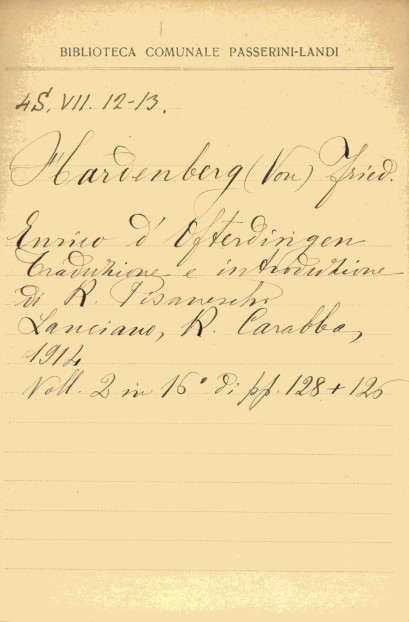 BIBLIOTECA COMUNALE PASSERINI-LANDI
4S. VII. 12-13.
Hardenberg (Von) Fried.
Enrico d' Ofterdingen
Traduzione e introduzione
di R. Pisaneschi
Lanciano, R. Carabba,
1914
Voll. 2 in 16° di pp. 128 + 126